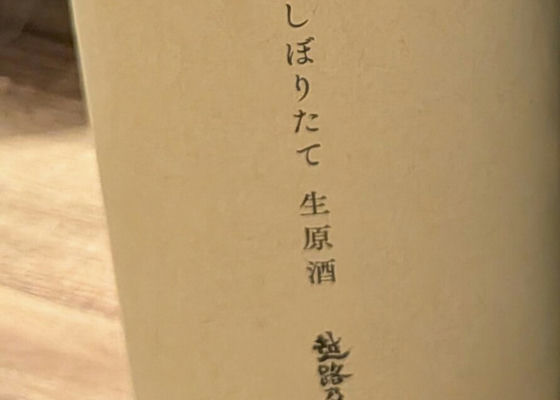 しぼりたて 生原酒 越路乃